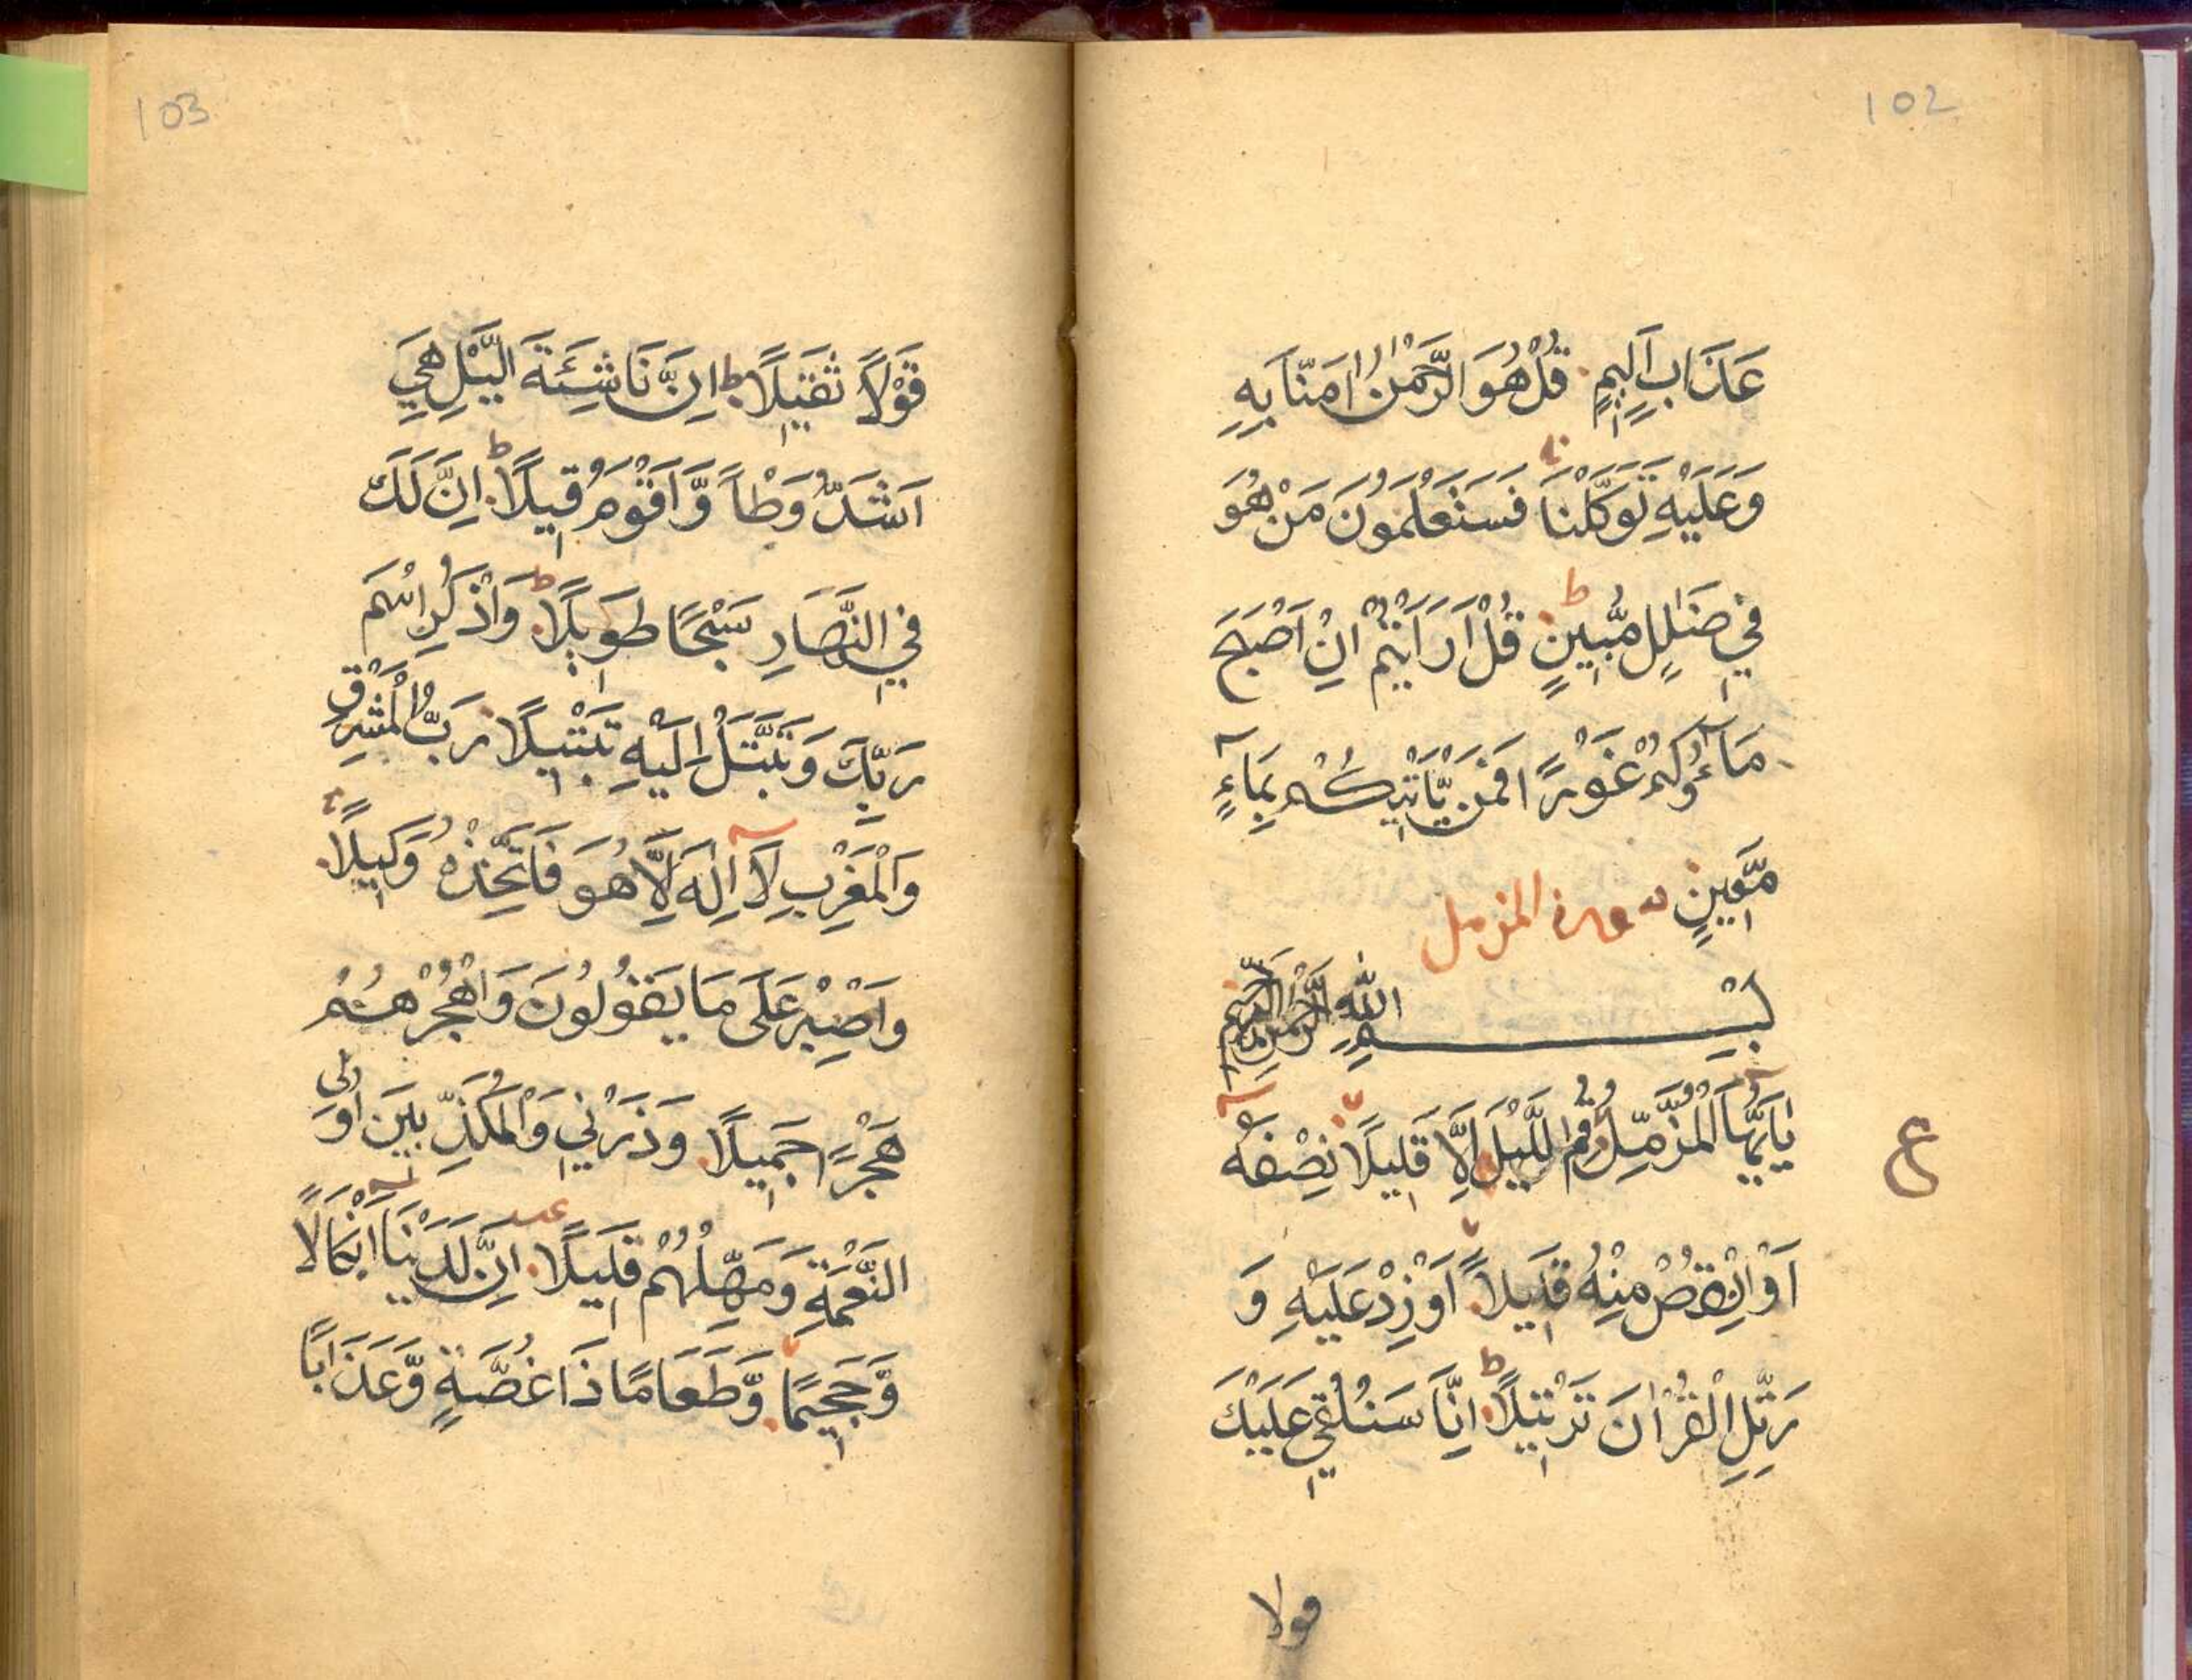 102
عَذَابٍ اَلِيْمٍ قُلْ هُوَ الرَّحْمٰنُ اٰمَنَّا بِهٖ
وَعَلَيْهِ تَوَكَّلْنَا فَسَتَعْلَمُوْنَ مَنْ هُوَ
فِيْ ضَلٰلٍ مُّبِيْنٍ ط قُلْ اَرَاَيْتُمْ اِنْ اَصْبَحَ
مَآؤُكُمْ غَوْرًا فَمَنْ يَّاْتِيْكُمْ بِمَآءٍ
مَّعِيْنٍ سورة المزمل
بِسْمِ اللّٰهِ الرَّحْمٰنِ الرَّحِيْمِ
يٰاَيُّهَا الْمُزَّمِّلُ قُمِ اللَّيْلَ اِلَّا قَلِيْلًا نِصْفَهٗ
ع
اَوِ انْقُصْ مِنْهُ قَلِيْلًا اَوْ زِدْ عَلَيْهِ وَ
رَتِّلِ الْقُرْاٰنَ تَرْتِيْلًا ط اِنَّا سَنُلْقِيْ عَلَيْكَ
قولا
103
قَوْلًا ثَقِيْلًا ط اِنَّ نَاشِئَةَ الَّيْلِ هِيَ
اَشَدُّ وَطْاً وَّاَقْوَمُ قِيْلًا ط اِنَّ لَكَ
فِي النَّهَارِ سَبْحًا طَوِيْلًا ط وَاذْكُرِ اسْمَ
رَبِّكَ وَتَبَتَّلْ اِلَيْهِ تَبْتِيْلًا رَبُّ الْمَشْرِقِ
وَالْمَغْرِبِ لَآ اِلٰهَ اِلَّا هُوَ فَاتَّخِذْهُ وَكِيْلًا
وَاصْبِرْ عَلٰى مَا يَقُوْلُوْنَ وَاهْجُرْهُمْ
هَجْرًا جَمِيْلًا وَذَرْنِيْ وَالْمُكَذِّبِيْنَ اُولِى
النَّعْمَةِ وَمَهِّلْهُمْ قَلِيْلًا اِنَّ لَدَيْنَا اَنْكَالًا
وَّجَحِيْمًا وَّطَعَامًا ذَا غُصَّةٍ وَّعَذَابًا